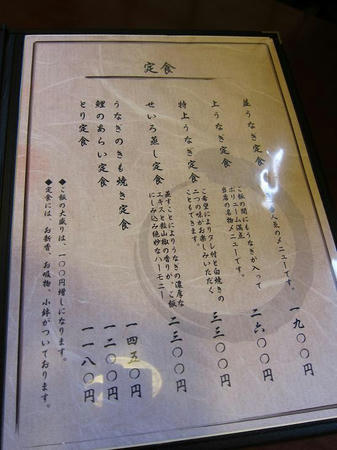 定食
並うなぎ定食
人気のメニューです。
一九〇〇円
上うなぎ定食
ご飯の間にもうなぎが入って
ボリューム満点
当店の名物メニューです。
二六〇〇円
特上うなぎ定食
ご希望によりタレ付と白焼きの
二つの味がお楽しみいただく
こともできます。
三三〇〇円
せいろ蒸し定食
蒸すことによりうなぎの濃厚な
エキスと飯山椒の香りが、ご飯
にしみ込み絶妙なハーモニー
二三〇〇円
うなぎのきも焼き定食
一四五〇円
鯉のあらい定食
一二〇〇円
とり定食
一一八〇円
◆ご飯の大盛りは、一〇〇円増しになります。
◆定食には、お新香、お吸物、小鉢がついております。